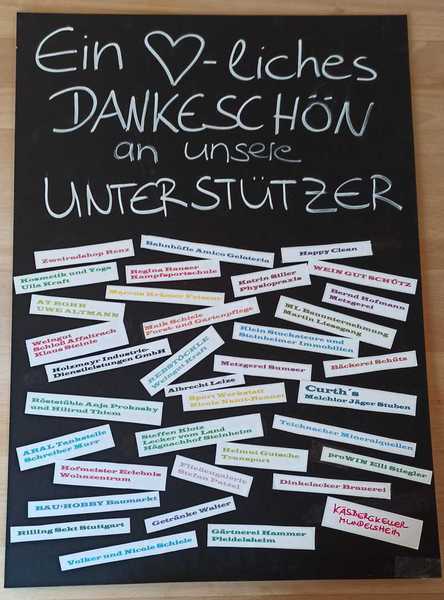 Ein ♡-liches
DANKESCHÖN
an unsere
UNTERSTÜTZER
Zweiradshop Renz
Bahnhöfle Amico Gelateria
Happy Clean
Kosmetik und Yoga
Ulla Kraft
Regina Hauser
Kampfsportschule
Katrin Siller
Physiopraxis
WEIN GUT SCHÜTZ
Bernd Hofmann
Metzgerei
AT BOHR
UWE ALTMANN
Marcus Krämer Friseur
Maik Schiele
Forst- und Gartenpflege
ML Bauunternehmung
Martin Liesegang
Weingut
Schloß Affaltrach
Klaus Steinle
Klein Stuckateure und
Steinheimer Immobilien
Holzmayr Industrie-
Dienstleistungen GmbH
REBSTÖCKLE
Weingut Kraft
Metzgerei Sumser
Bäckerei Schütz
Albrecht Leize
Röststüble Anja Proknsky
und Hiltrud Thiem
Sport Werkstatt
Nicole
Curth´s
Melchior Jäger Stuben
ARAL Tankstelle
Schreiber Murr
Steffen Klotz
Lecker vom Land
Hägnachhof Steinheim
Teinacher Mineralquellen
Helmut Gutsche
Transport
proWIN Elli Stiegler
Hofmeister Erlebnis
Wohnzentrum
Fliesengalerie
Stefan Patzel
Dinkelacker Brauerei
BAU+HOBBY Baumarkt
Getränke Walter
KÄSBERGKELLER
MUNDELSHEIM
Rilling Sekt Stuttgart
Gärtnerei Hammer
Pleidelsheim
Volker und Nicole Schiele